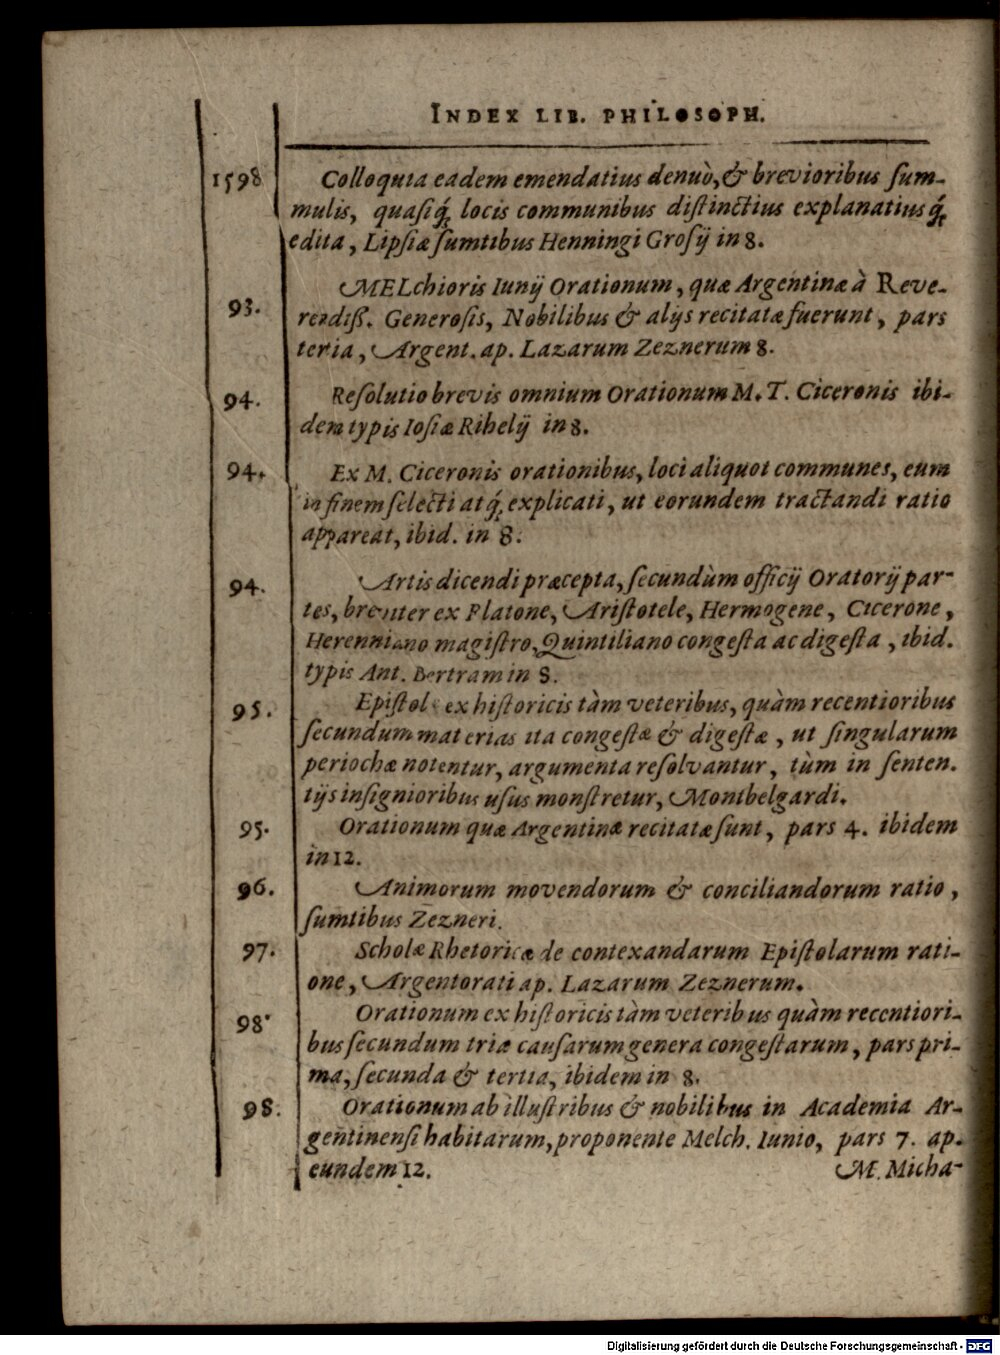 INDEX LIB. PHILOSOPH.
1598 Colloquia eadem emendatius denuò, & brevioribus ſum-
mulis, quaſiq́; locis communibus diſtinctius explanatiusq́;
edita, Lipſiæ ſumtibus Henningi Groſij in 8.
93. MELchioris Iunij Orationum, quæ Argentinæ à Reve-
rendiß. Generoſis, Nobilibus & alijs recitatæ fuerunt, pars
tertia, Argent. ap. Lazarum Zeznerum 8.
94. Reſolutio brevis omnium Orationum M. T. Ciceronis ibi-
dem typis Ioſiæ Rihelij in 8.
94. Ex M. Ciceronis orationibus, loci aliquot communes, eum
in finem ſelecti atq́; explicati, ut eorundem tractandi ratio
appareat, ibid. in 8.
94. Artis dicendi præcepta, ſecundùm officij Oratorij par-
tes, breviter ex Platone, Ariſtotele, Hermogene, Cicerone,
Herenniano magiſtro, Quintiliano congeſta ac digeſta, ibid.
typis Ant. Bertram in 8.
95. Epiſtolæ ex hiſtoricis tàm veteribus, quàm recentioribus
ſecundum materias ita congeſtæ & digeſtæ, ut ſingularum
periochæ notentur, argumenta reſolvantur, tùm in ſenten.
tijs inſignioribus uſus monſtretur, Montbelgardi.
95. Orationum quæ Argentinæ recitatæ ſunt, pars 4. ibidem
in 12.
96. Animorum movendorum & conciliandorum ratio,
ſumtibus Zezneri.
97. Scholæ Rhetoricæ de contexandarum Epiſtolarum rati-
one, Argentorati ap. Lazarum Zeznerum.
98. Orationum ex hiſtoricis tàm veteribus quàm recentiori-
bus ſecundum triæ cauſarum genera congeſtarum, pars pri-
ma, ſecunda & tertia, ibidem in 8.
98. Orationum ab illuſtribus & nobilibus in Academia Ar-
gentinenſi habitarum, proponente Melch. Iunio, pars 7. ap.
eundem 12.
M. Micha-
Digitalisierung gefördert durch die Deutsche Forschungsgemeinschaft - DFG